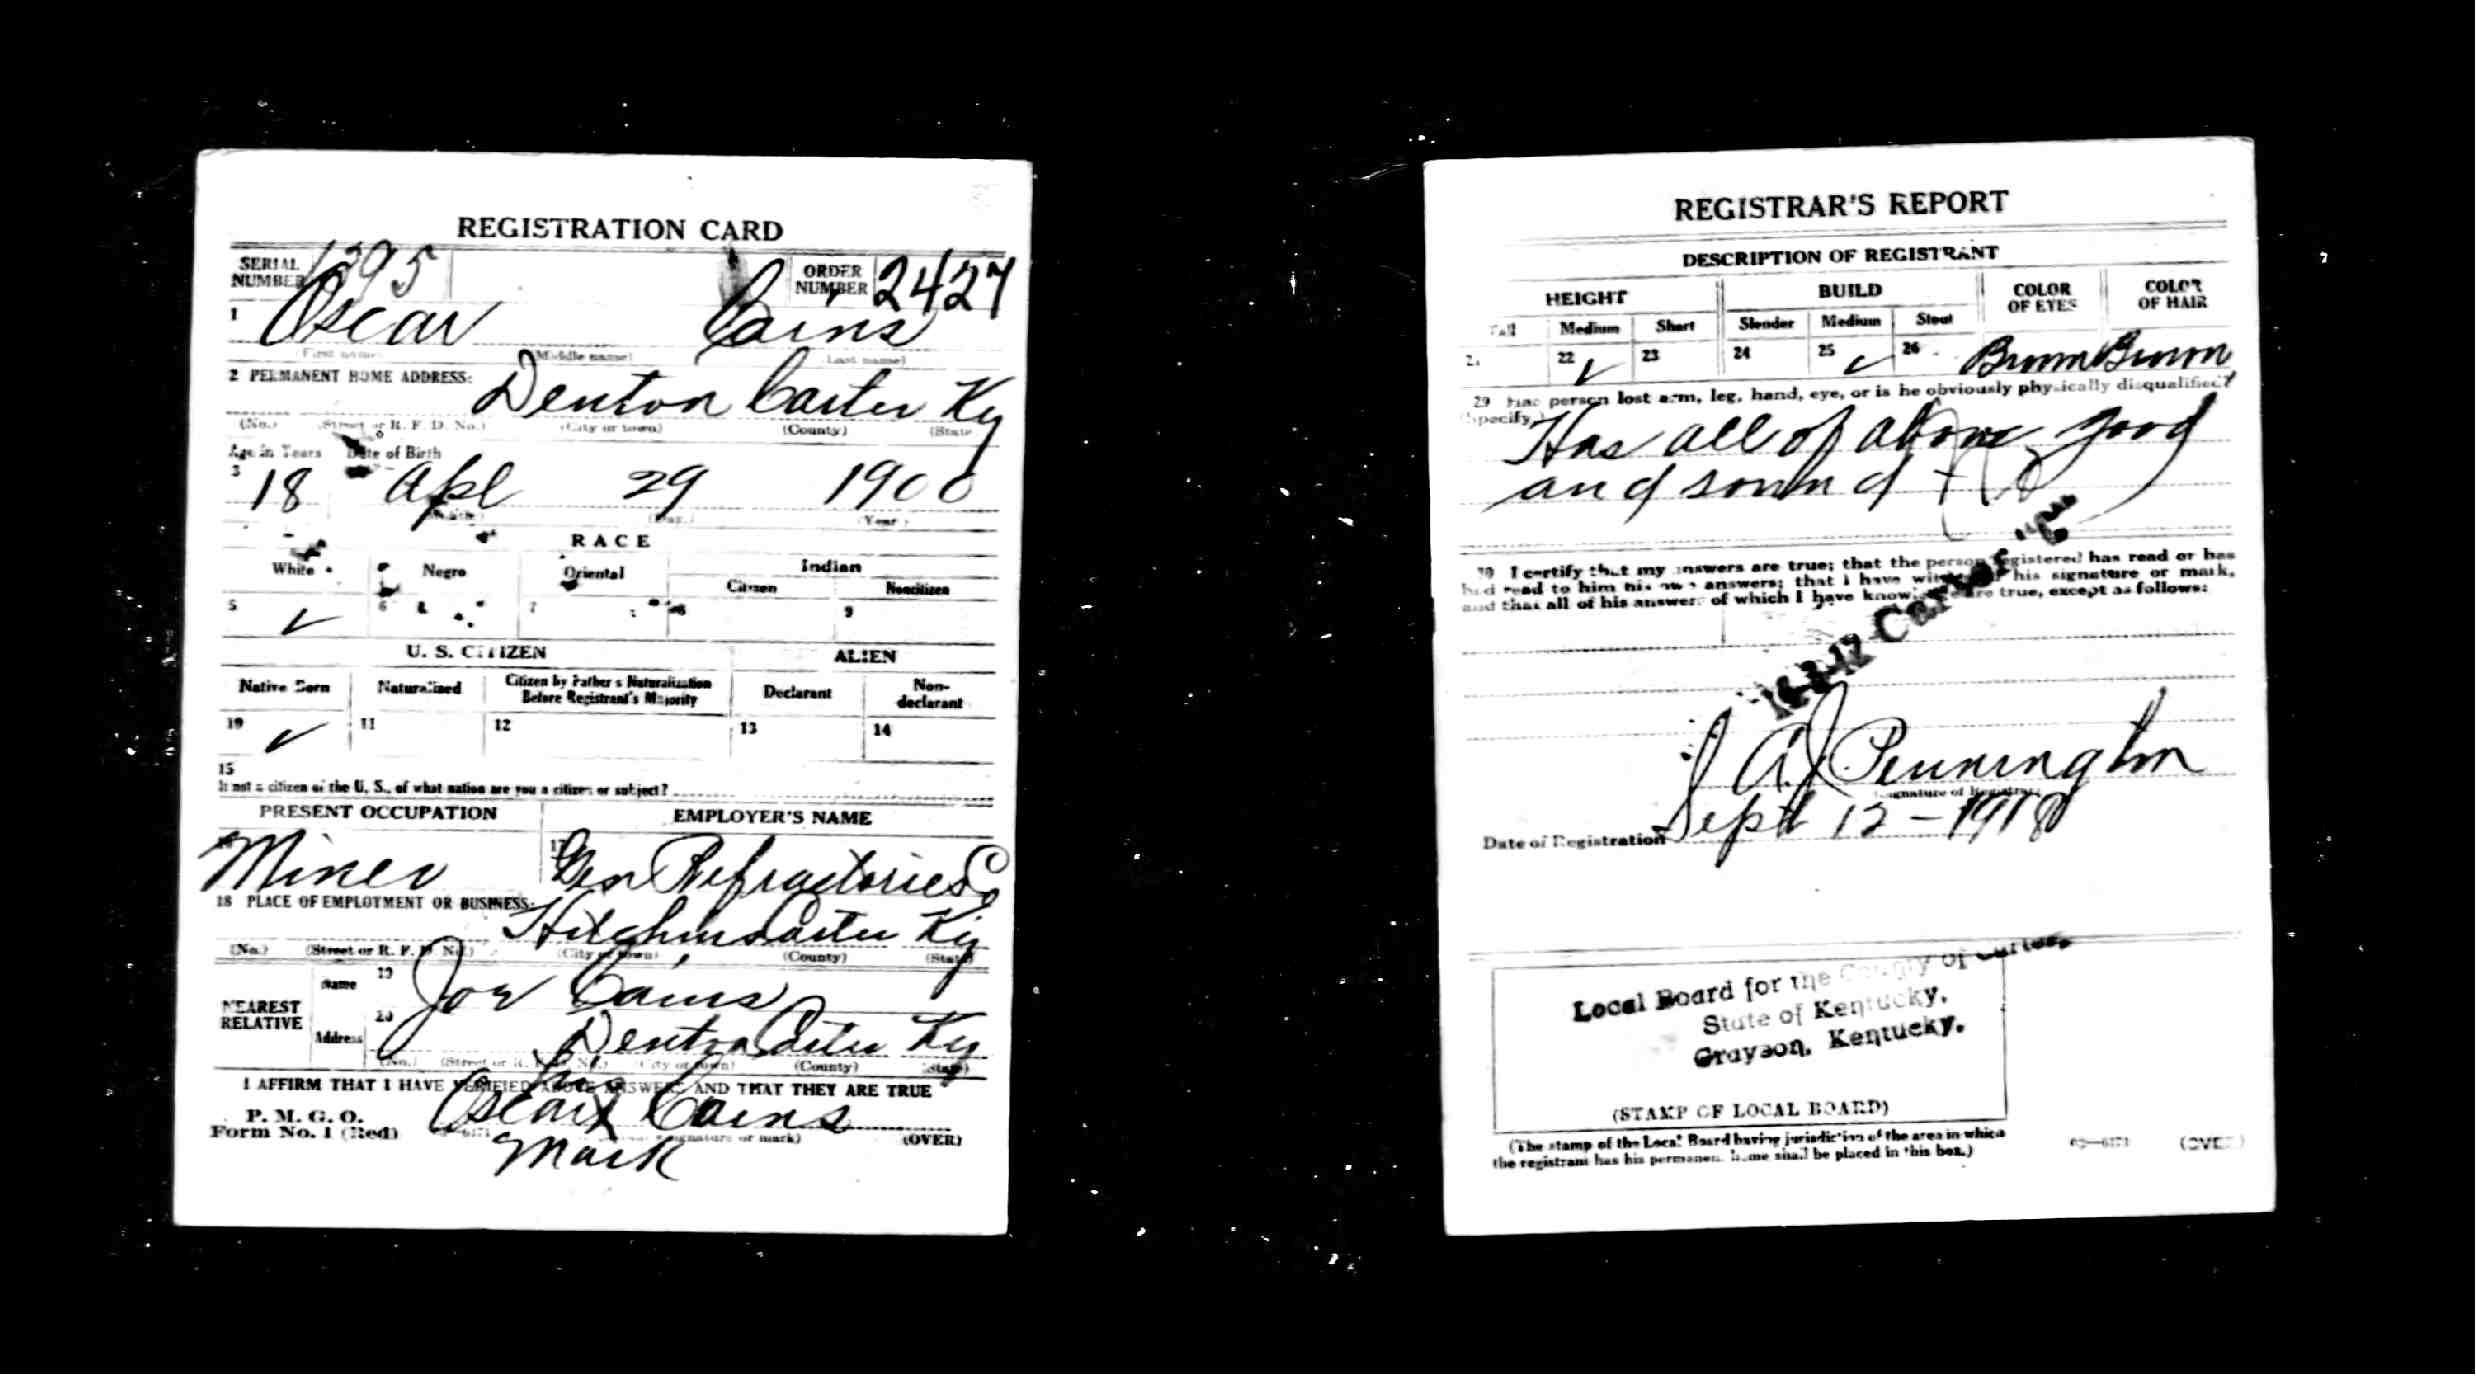 REGISTRATION CARD
SERIAL NUMBER 1395
ORDER NUMBER 2427
1 Oscar Cains
(First name) (Middle name) (Last name)
2 PERMANENT HOME ADDRESS:
Denton Carter Ky
(No.) (Street or R. F. D. No.) (City or town) (County) (State)
Age in Years Date of Birth
3 18 Apl 29 1900
(Month) (Day) (Year)
RACE
White Negro Oriental Indian
Citizen Noncitizen
5 ✓ 6 7 8 9
U. S. CITIZEN ALIEN
Native Born Naturalized Citizen by Father's Naturalization Before Registrant's Majority Declarant Non-declarant
10 ✓ 11 12 13 14
15
If not a citizen of the U. S., of what nation are you a citizen or subject?
PRESENT OCCUPATION EMPLOYER'S NAME
Miner 17 Gen Refractories Co
18 PLACE OF EMPLOYMENT OR BUSINESS:
Carter Ky
(No.) (Street or R. F. D. No.) (City or town) (County) (State)
NEAREST RELATIVE
Name 19 Joe Cains
Address 20 Denton Carter Ky
(No.) (Street or R. F. D. No.) (City or town) (County) (State)
I AFFIRM THAT I HAVE VERIFIED ABOVE ANSWERS AND THAT THEY ARE TRUE
P. M. G. O.
Form No. 1 (Red)
his
Oscar X Cains
(Signature or mark) (OVER)
Mark
REGISTRAR'S REPORT
DESCRIPTION OF REGISTRANT
HEIGHT BUILD COLOR OF EYES COLOR OF HAIR
Tall Medium Short Slender Medium Stout
21 22 ✓ 23 24 25 ✓ 26 Brown Brown
29 Has person lost arm, leg, hand, eye, or is he obviously physically disqualified?
(Specify.)
Has all of above good
and sound
30 I certify that my answers are true; that the person registered has read or has
had read to him his own answers; that I have witnessed his signature or mark,
and that all of his answers of which I have knowledge are true, except as follows:
Pennington
(Signature of Registrar)
Date of Registration Sept 12 - 1918
Local Board for the County of Carter,
State of Kentucky,
Grayson, Kentucky.
(STAMP OF LOCAL BOARD)
(The stamp of the Local Board having jurisdiction of the area in which
the registrant has his permanent home shall be placed in this box.)
(OVER)